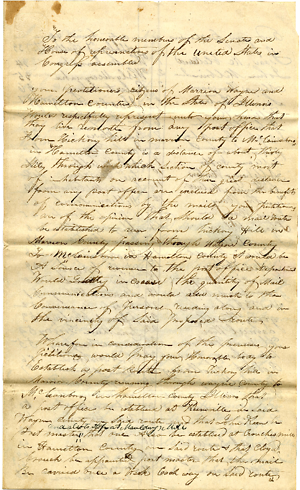 To the honorable members of the Senate and
House of representatives of the United States in
Congress assembled
your petitioners citizens of Marrion Wayne and
Hamelton Counties in the State of Illinois
Would respectfully represent unto your honors that
they live remote from any post office that
from Hickory Hill in marrion County to McLeansboro
in Hamelton County is a distance of about forty
miles through which section of country most
of inhabitants on account of the great distance
from any post office are precluded from the benefit
of communication by the mails your petitioners
are of the opinion that should a mail route
be established to run from Hickory Hill in
Marrion County passing through Wayne County
To McLeansboro in Hamelton County it would be
of revenue to the post office department
Would greatly increase the quantity of mail
communication and would add much to the
Convenience of persons residing along and in
the vicinity of said proposed route
Wherefore in consideration of the premises your
petitioners would pray your Honorable body to
Establish a post route from Hickory Hill in
Marion County running through wayne County to
McLeansboro in hamelton County Illinois that
a post office be established at in said
Wayne County on said route & that
post master that one also be established at
in Hamelton County on said route & that
be appointed post master that the mail
Be carried once a week each way on said route